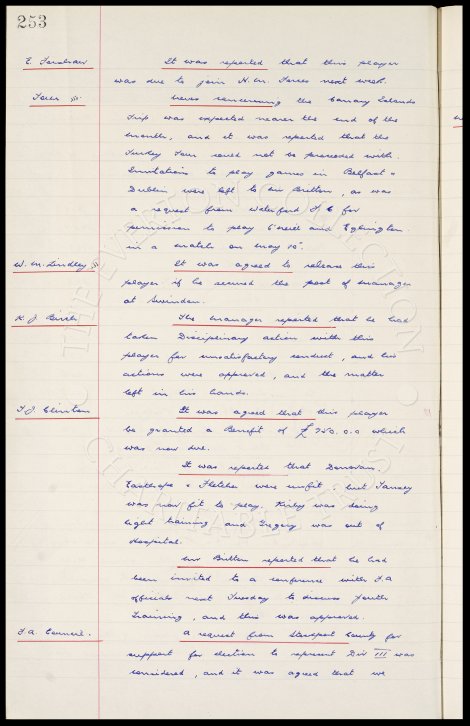 253
It was reported that this player
was due to join H.M. Forces next week.
Tour
News concerning the Canary Islands
Trip was expected nearer the end of the
month, and it was reported that the
Turkey Tour could not be proceeded with.
Invitations to play games in Belfast &
Dublin were left to Mr Britton, as was
a request from Waterford F.C for
permission to play O'Neill and Eglington
in a match on May 10".
W. M. Lindley
It was agreed to release this
player if he secured the post of Manager
at Swindon.
K. J. Birch
The Manager reported that he had
taken Disciplinary action with this
player for unsatisfactory conduct, and his
actions were approved, and the matter
left in his hands.
T. J. Clinton
It was agreed that this player
be granted a Benefit of £750.0.0 which
was now due.
It was reported that Donovan,
Easthope & Fletcher were unfit, but Tansey
was now fit to play. Kirby was doing
light training and Gregory was out of
Hospital.
Mr Britton reported that he had
been invited to a conference with F.A
officials next Tuesday to discuss Youth
Training, and this was approved.
F.A. Council.
A request from Stockport County for
support for election to represent Div III was
considered, and it was agreed that we
THE EVERTON COLLECTION
CHARITABLE TRUST